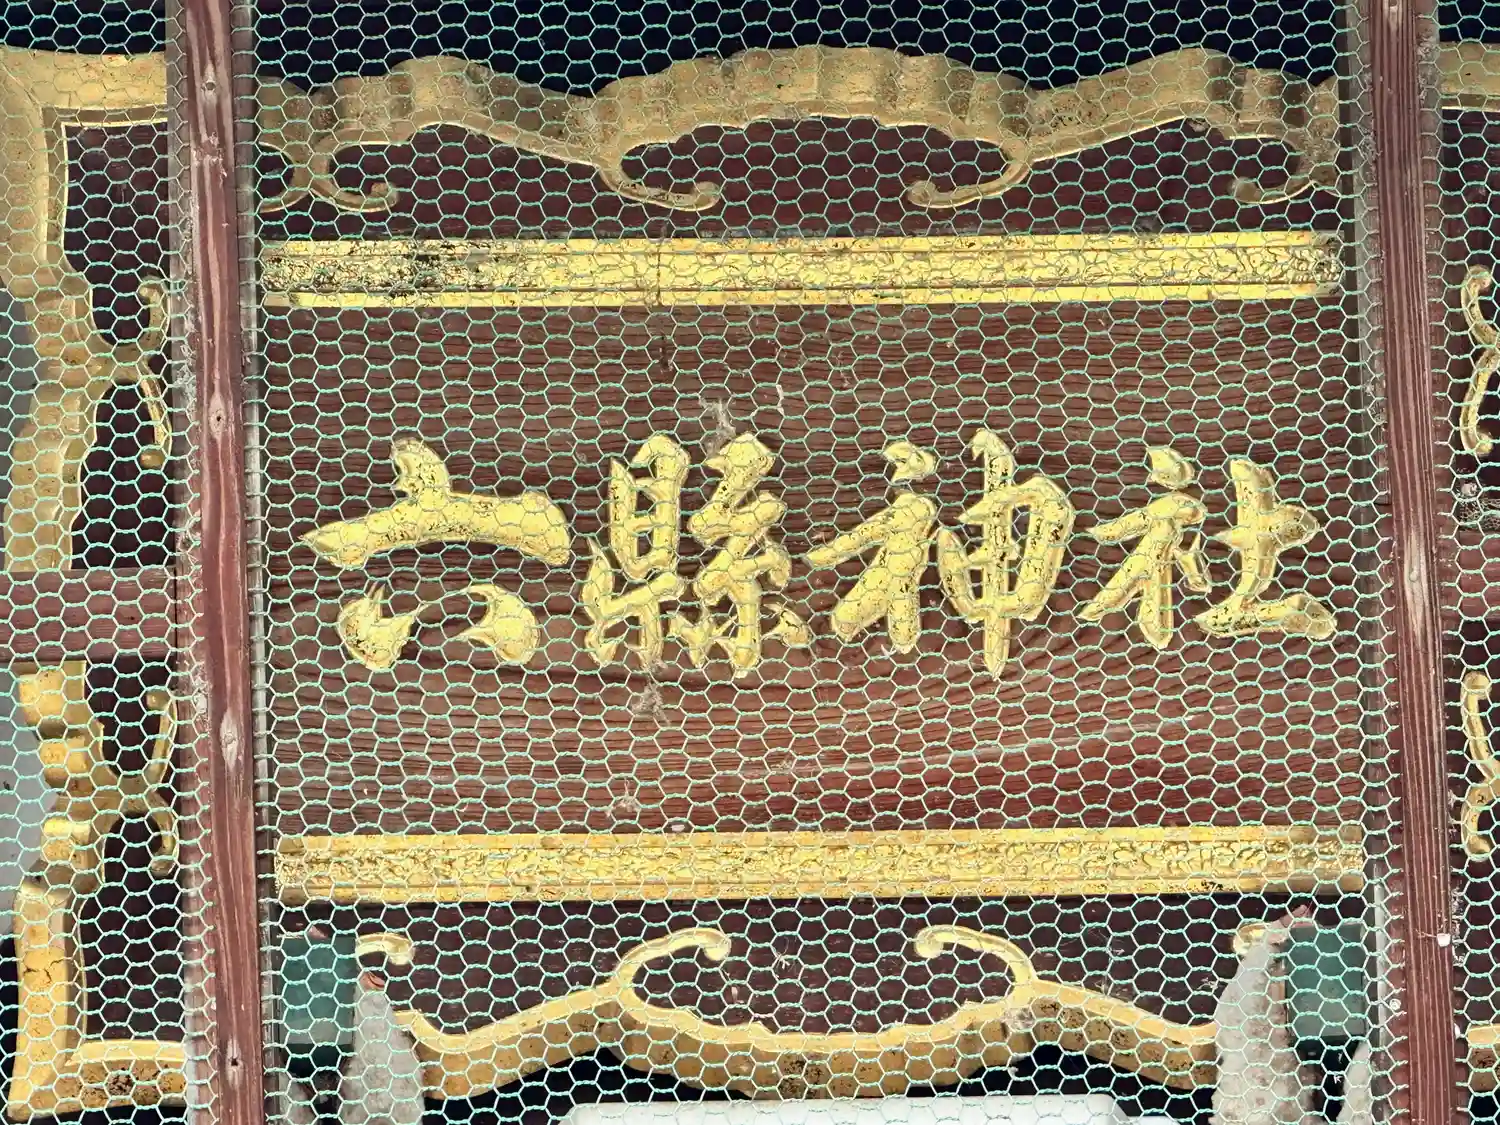 六縣神社